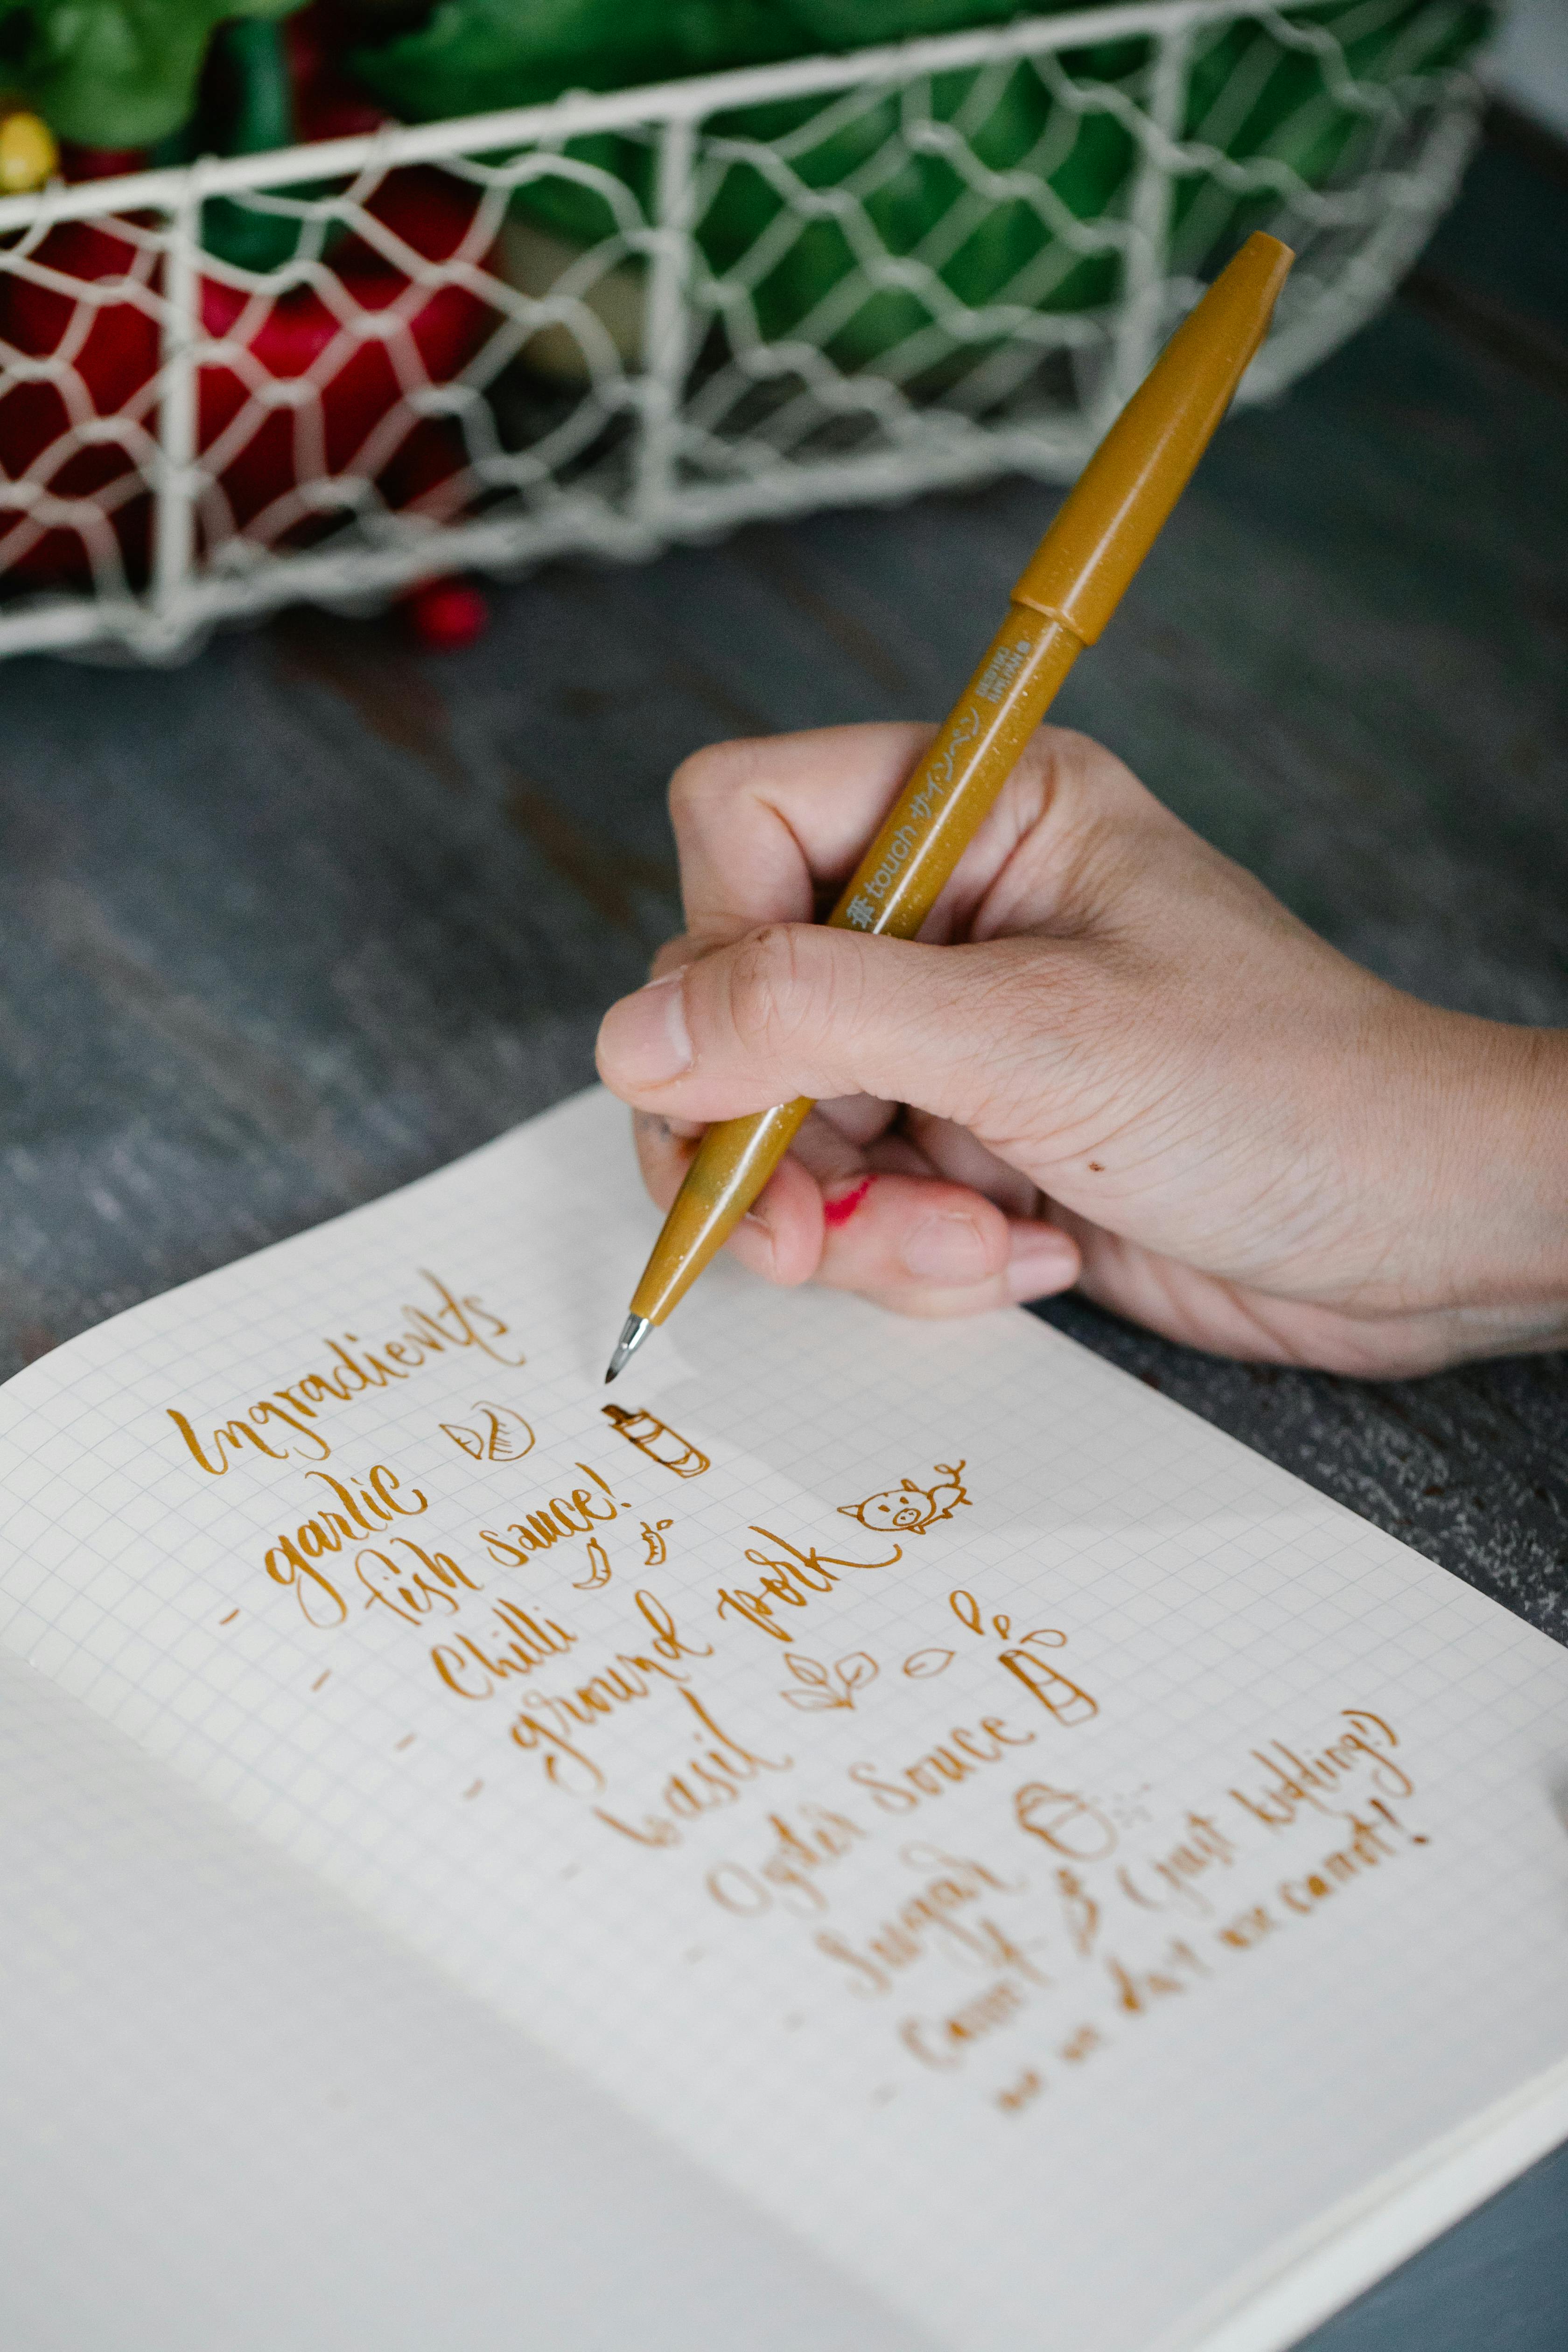 touch サインペン
Ingradients
- garlic
- fish sauce!
- Chilli
- ground pork
- basil
- Oyster Souce
- Sugar
- Carrot (just kidding!)
no no dat no carrot!